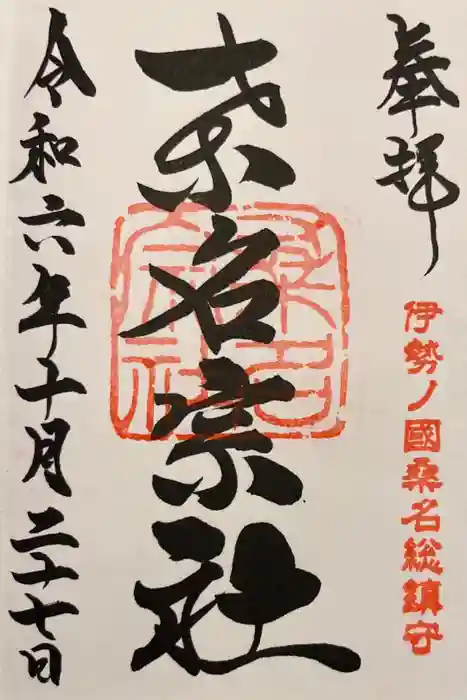 奉拝
伊勢ノ國桑名総鎮守
桑名宗社
桑名宗社
令和六年十月二十七日